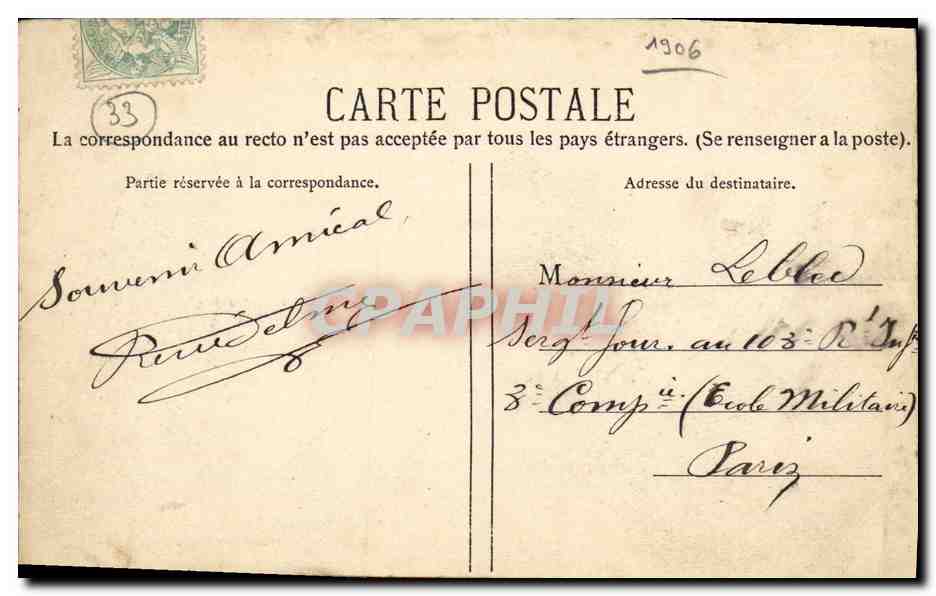 1906
33
CARTE POSTALE
La correspondance au recto n'est pas acceptée par tous les pays étrangers. (Se renseigner a la poste).
Partie réservée à la correspondance.
Souvenir Amical
René Delme
CPAPHIL
Adresse du destinataire.
Monsieur Lebled
Sergt Four. au 103e Rt Inf
3e Compie (Ecole Militaire)
Paris